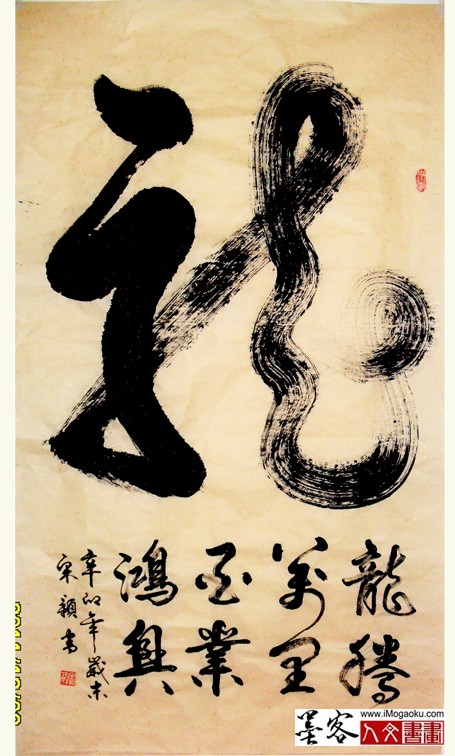 龍
龍騰
萬里
百業
鴻興
辛卯年歲末
宋穎書
www.iMogaoku.com
墨客 人文書畫